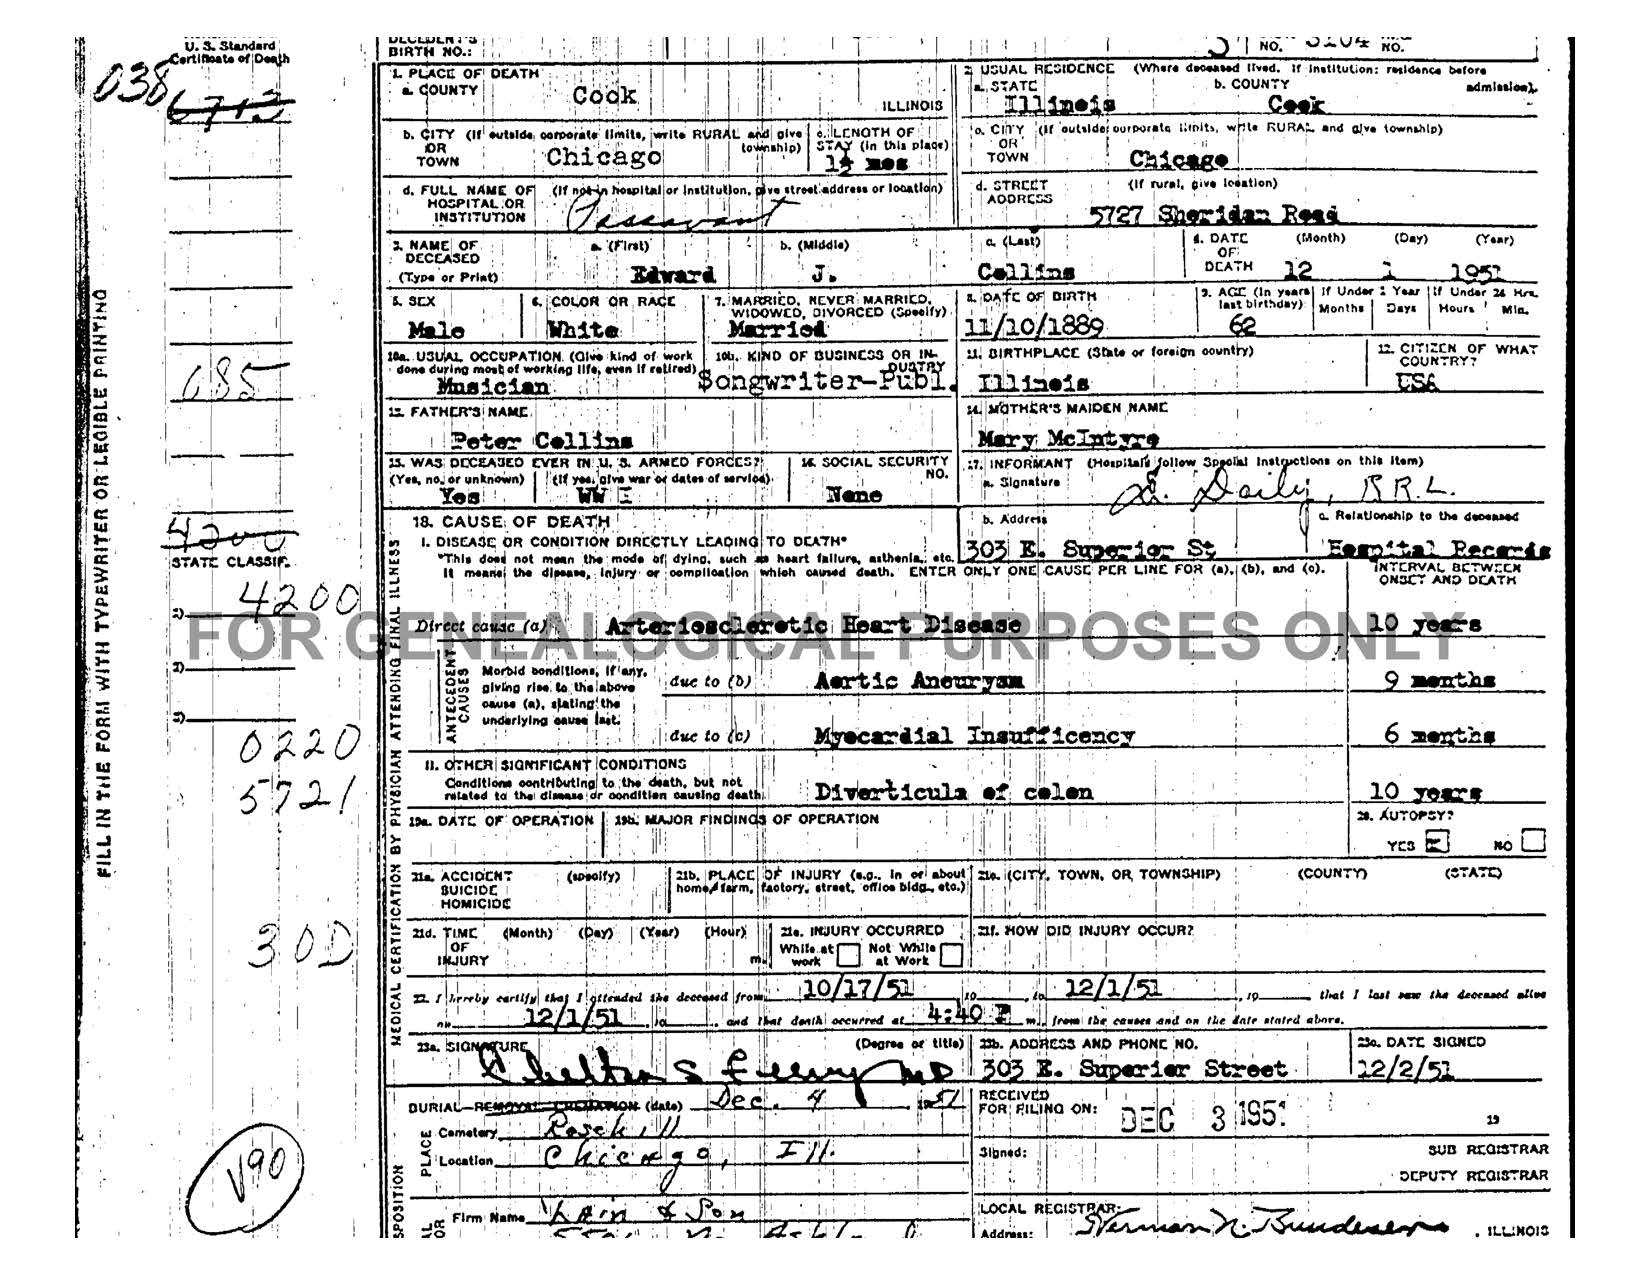 U. S. Standard
Certificate of Death
038
6712
DECEDENT'S
BIRTH NO.:
NO. 3104 NO.
1. PLACE OF DEATH
a. COUNTY Cook ILLINOIS
2. USUAL RESIDENCE (Where deceased lived. If institution: residence before admission).
a. STATE Illinois b. COUNTY Cook
b. CITY (If outside corporate limits, write RURAL and give township)
OR
TOWN Chicago
c. LENGTH OF
STAY (in this place)
1½ mos
c. CITY (If outside corporate limits, write RURAL and give township)
OR
TOWN Chicago
d. FULL NAME OF (If not in hospital or institution, give street address or location)
HOSPITAL OR
INSTITUTION Passavant
d. STREET (If rural, give location)
ADDRESS
5727 Sheridan Road
3. NAME OF
DECEASED
(Type or Print)
a. (First) b. (Middle) c. (Last)
Edward J. Collins
4. DATE (Month) (Day) (Year)
OF
DEATH 12 1 1951
5. SEX
Male
6. COLOR OR RACE
White
7. MARRIED, NEVER MARRIED,
WIDOWED, DIVORCED (Specify)
Married
8. DATE OF BIRTH
11/10/1889
9. AGE (In years
last birthday)
62
If Under 1 Year
Months Days
If Under 24 Hrs.
Hours Min.
10a. USUAL OCCUPATION (Give kind of work
done during most of working life, even if retired)
Musician
10b. KIND OF BUSINESS OR IN-
DUSTRY
Songwriter-Publ.
11. BIRTHPLACE (State or foreign country)
Illinois
12. CITIZEN OF WHAT
COUNTRY?
USA
685
13. FATHER'S NAME
Peter Collins
14. MOTHER'S MAIDEN NAME
Mary McIntyre
15. WAS DECEASED EVER IN U. S. ARMED FORCES?
(Yes, no, or unknown) (If yes, give war or dates of service)
Yes WW I
16. SOCIAL SECURITY
NO.
None
17. INFORMANT (Hospitals follow Special Instructions on this item)
a. Signature Daily, R.R.L.
b. Address
303 E. Superior St
c. Relationship to the deceased
Hospital Records
FILL IN THE FORM WITH TYPEWRITER OR LEGIBLE PRINTING
MEDICAL CERTIFICATION BY PHYSICIAN ATTENDING FINAL ILLNESS
4200
STATE CLASSIF.
18. CAUSE OF DEATH
I. DISEASE OR CONDITION DIRECTLY LEADING TO DEATH*
*This does not mean the mode of dying, such as heart failure, asthenia, etc.
It means the disease, injury or complication which caused death. ENTER ONLY ONE CAUSE PER LINE FOR (a), (b), and (c).
INTERVAL BETWEEN
ONSET AND DEATH
1) 4200
Direct cause (a) Arteriosclerotic Heart Disease 10 years
FOR GENEALOGICAL PURPOSES ONLY
2)
ANTECEDENT
CAUSES
Morbid conditions, if any,
giving rise to the above
cause (a), stating the
underlying cause last.
due to (b) Aortic Aneurysm 9 months
3)
due to (c) Myocardial Insufficency 6 months
0220
5721
II. OTHER SIGNIFICANT CONDITIONS
Conditions contributing to the death, but not
related to the disease or condition causing death.
Diverticula of colon 10 years
19a. DATE OF OPERATION
19b. MAJOR FINDINGS OF OPERATION
20. AUTOPSY?
YES NO
21a. ACCIDENT (specify)
SUICIDE
HOMICIDE
21b. PLACE OF INJURY (e.g., in or about
home, farm, factory, street, office bldg., etc.)
21c. (CITY, TOWN, OR TOWNSHIP) (COUNTY) (STATE)
30D
21d. TIME (Month) (Day) (Year) (Hour)
OF
INJURY m.
21e. INJURY OCCURRED
While at work Not While at Work
21f. HOW DID INJURY OCCUR?
22. I hereby certify that I attended the deceased from 10/17/51, 19 , to 12/1/51, 19 , that I last saw the deceased alive
on 12/1/51, 19 , and that death occurred at 4:40 P m., from the causes and on the date stated above.
23a. SIGNATURE (Degree or title)
MD
23b. ADDRESS AND PHONE NO.
303 E. Superior Street
23c. DATE SIGNED
12/2/51
BURIAL-REMOVAL-CREMATION (date) Dec. 4 1951
PLACE
Cemetery Rosehill
Location Chicago, Ill.
RECEIVED
FOR FILING ON: DEC 3 1951 19
Signed: SUB REGISTRAR
DEPUTY REGISTRAR
V90
DISPOSITION
Firm Name Lain & Son
LOCAL REGISTRAR:
Herman N. Bundesen
Address: , ILLINOIS